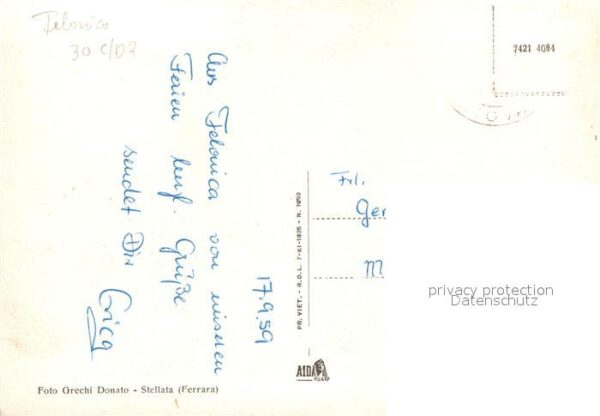 Felonica
30 C/D2
7421 4084
17.9.59
Aus Felonica von unseren
Ferien herzl. Grüße
sendet Dir
Erica
PR. VIET. - R.D.L. 7-XI-1926 - N. 1050
AIDA
Frl.
Ger
M
privacy protection
Datenschutz
Foto Grechi Donato - Stellata (Ferrara)